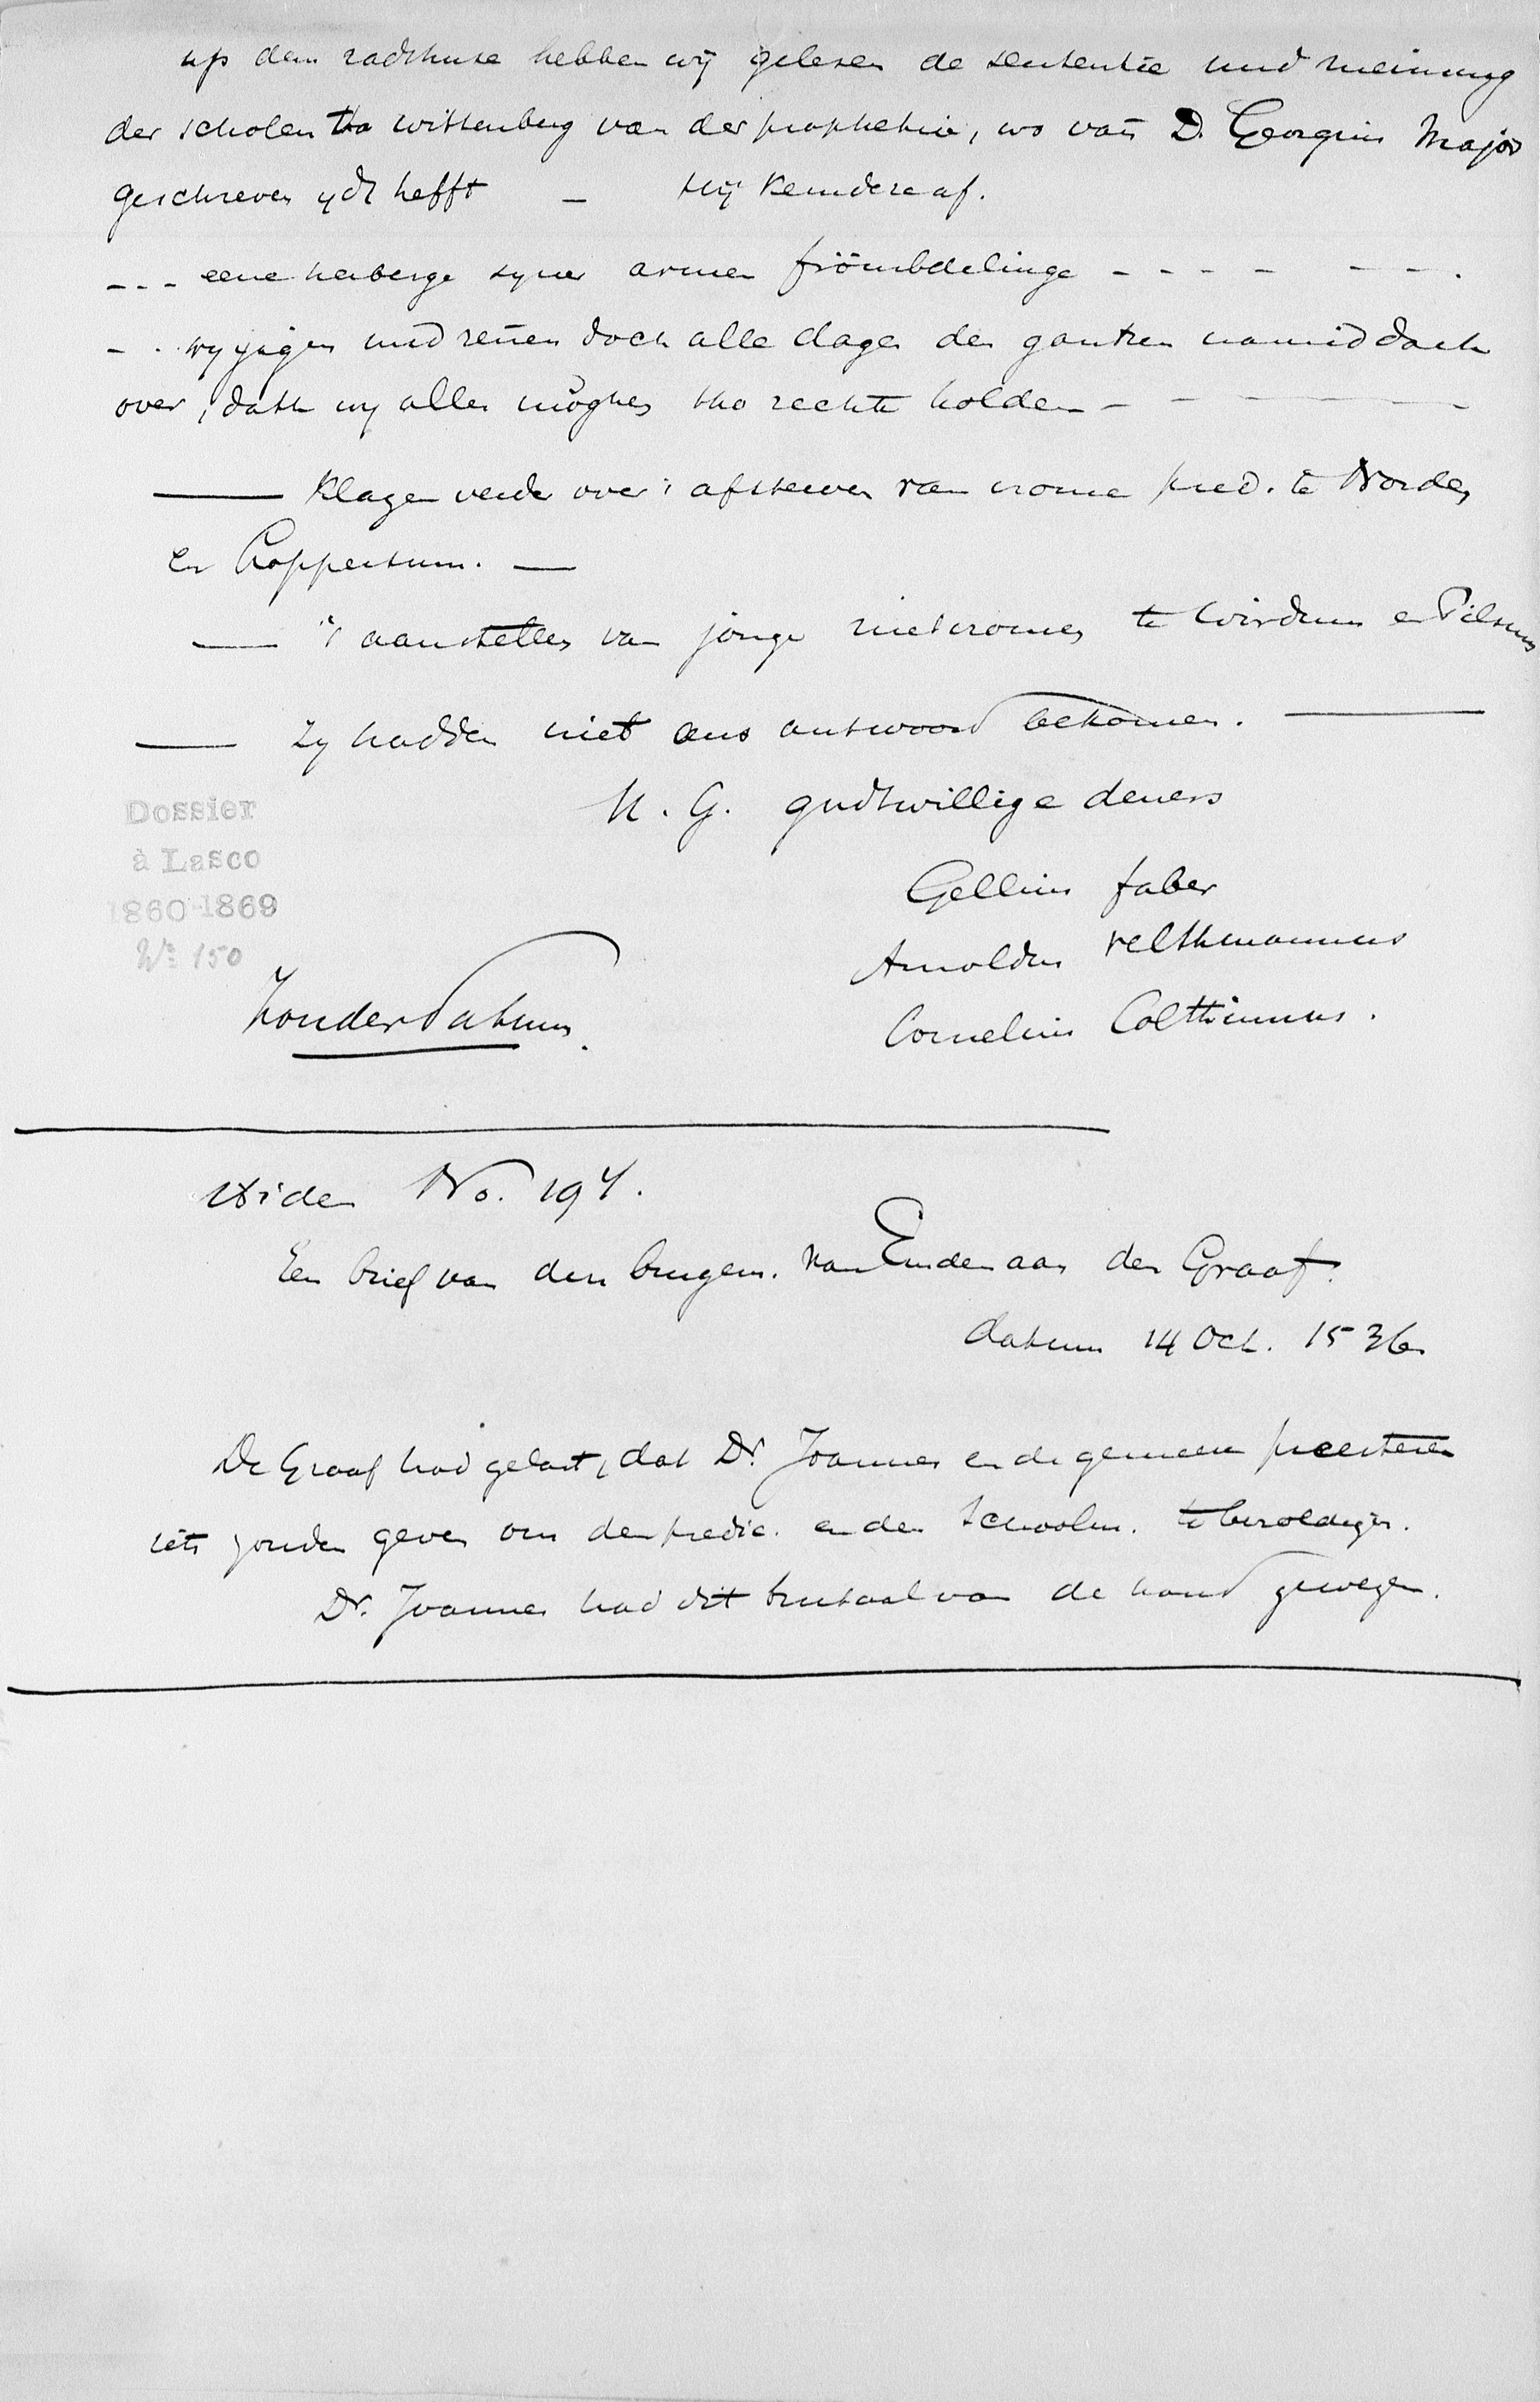 up dem radthuse hebben wij gelesen de sententie und meinung
der scholen tho wittenberg van der prophetie, wo van D. Georgius Major
geschreven ydt hefft — Hij keurdere af.
--- eene herberge syner armen frömbdelinge - - - - - - - .
- . wy jagen und rennen doch alle dage den gantzen namiddach
over, dath wy alles möghen tho rechte holden - - - - -
— Klagen verder over 't afsterven van vrome pred. te Norden
en Loppersum. —
— 't aanstellen van jonge nietvromen te Wirdum en Pilsum
— Zy hadden niet eens antwoord bekomen. —
U. G. gudtwillige deners
Dossier
à Lasco
1860-1869
No 150
Gellius faber
Arnoldus velthmannus
Cornelius Colthunnus.
Zonder datum.
Ibidem No. 197.
Een brief van den burgem. van Emden aan den Graaf.
datum 14 Oct. 1536
De Graaf had gelast, dat Dr. Joannes en de gemeene preesteren
iets zouden geven om den predic. en den Schoolm. te bezoldigen.
Dr. Joannes had dit brutaal van de hand gewezen.